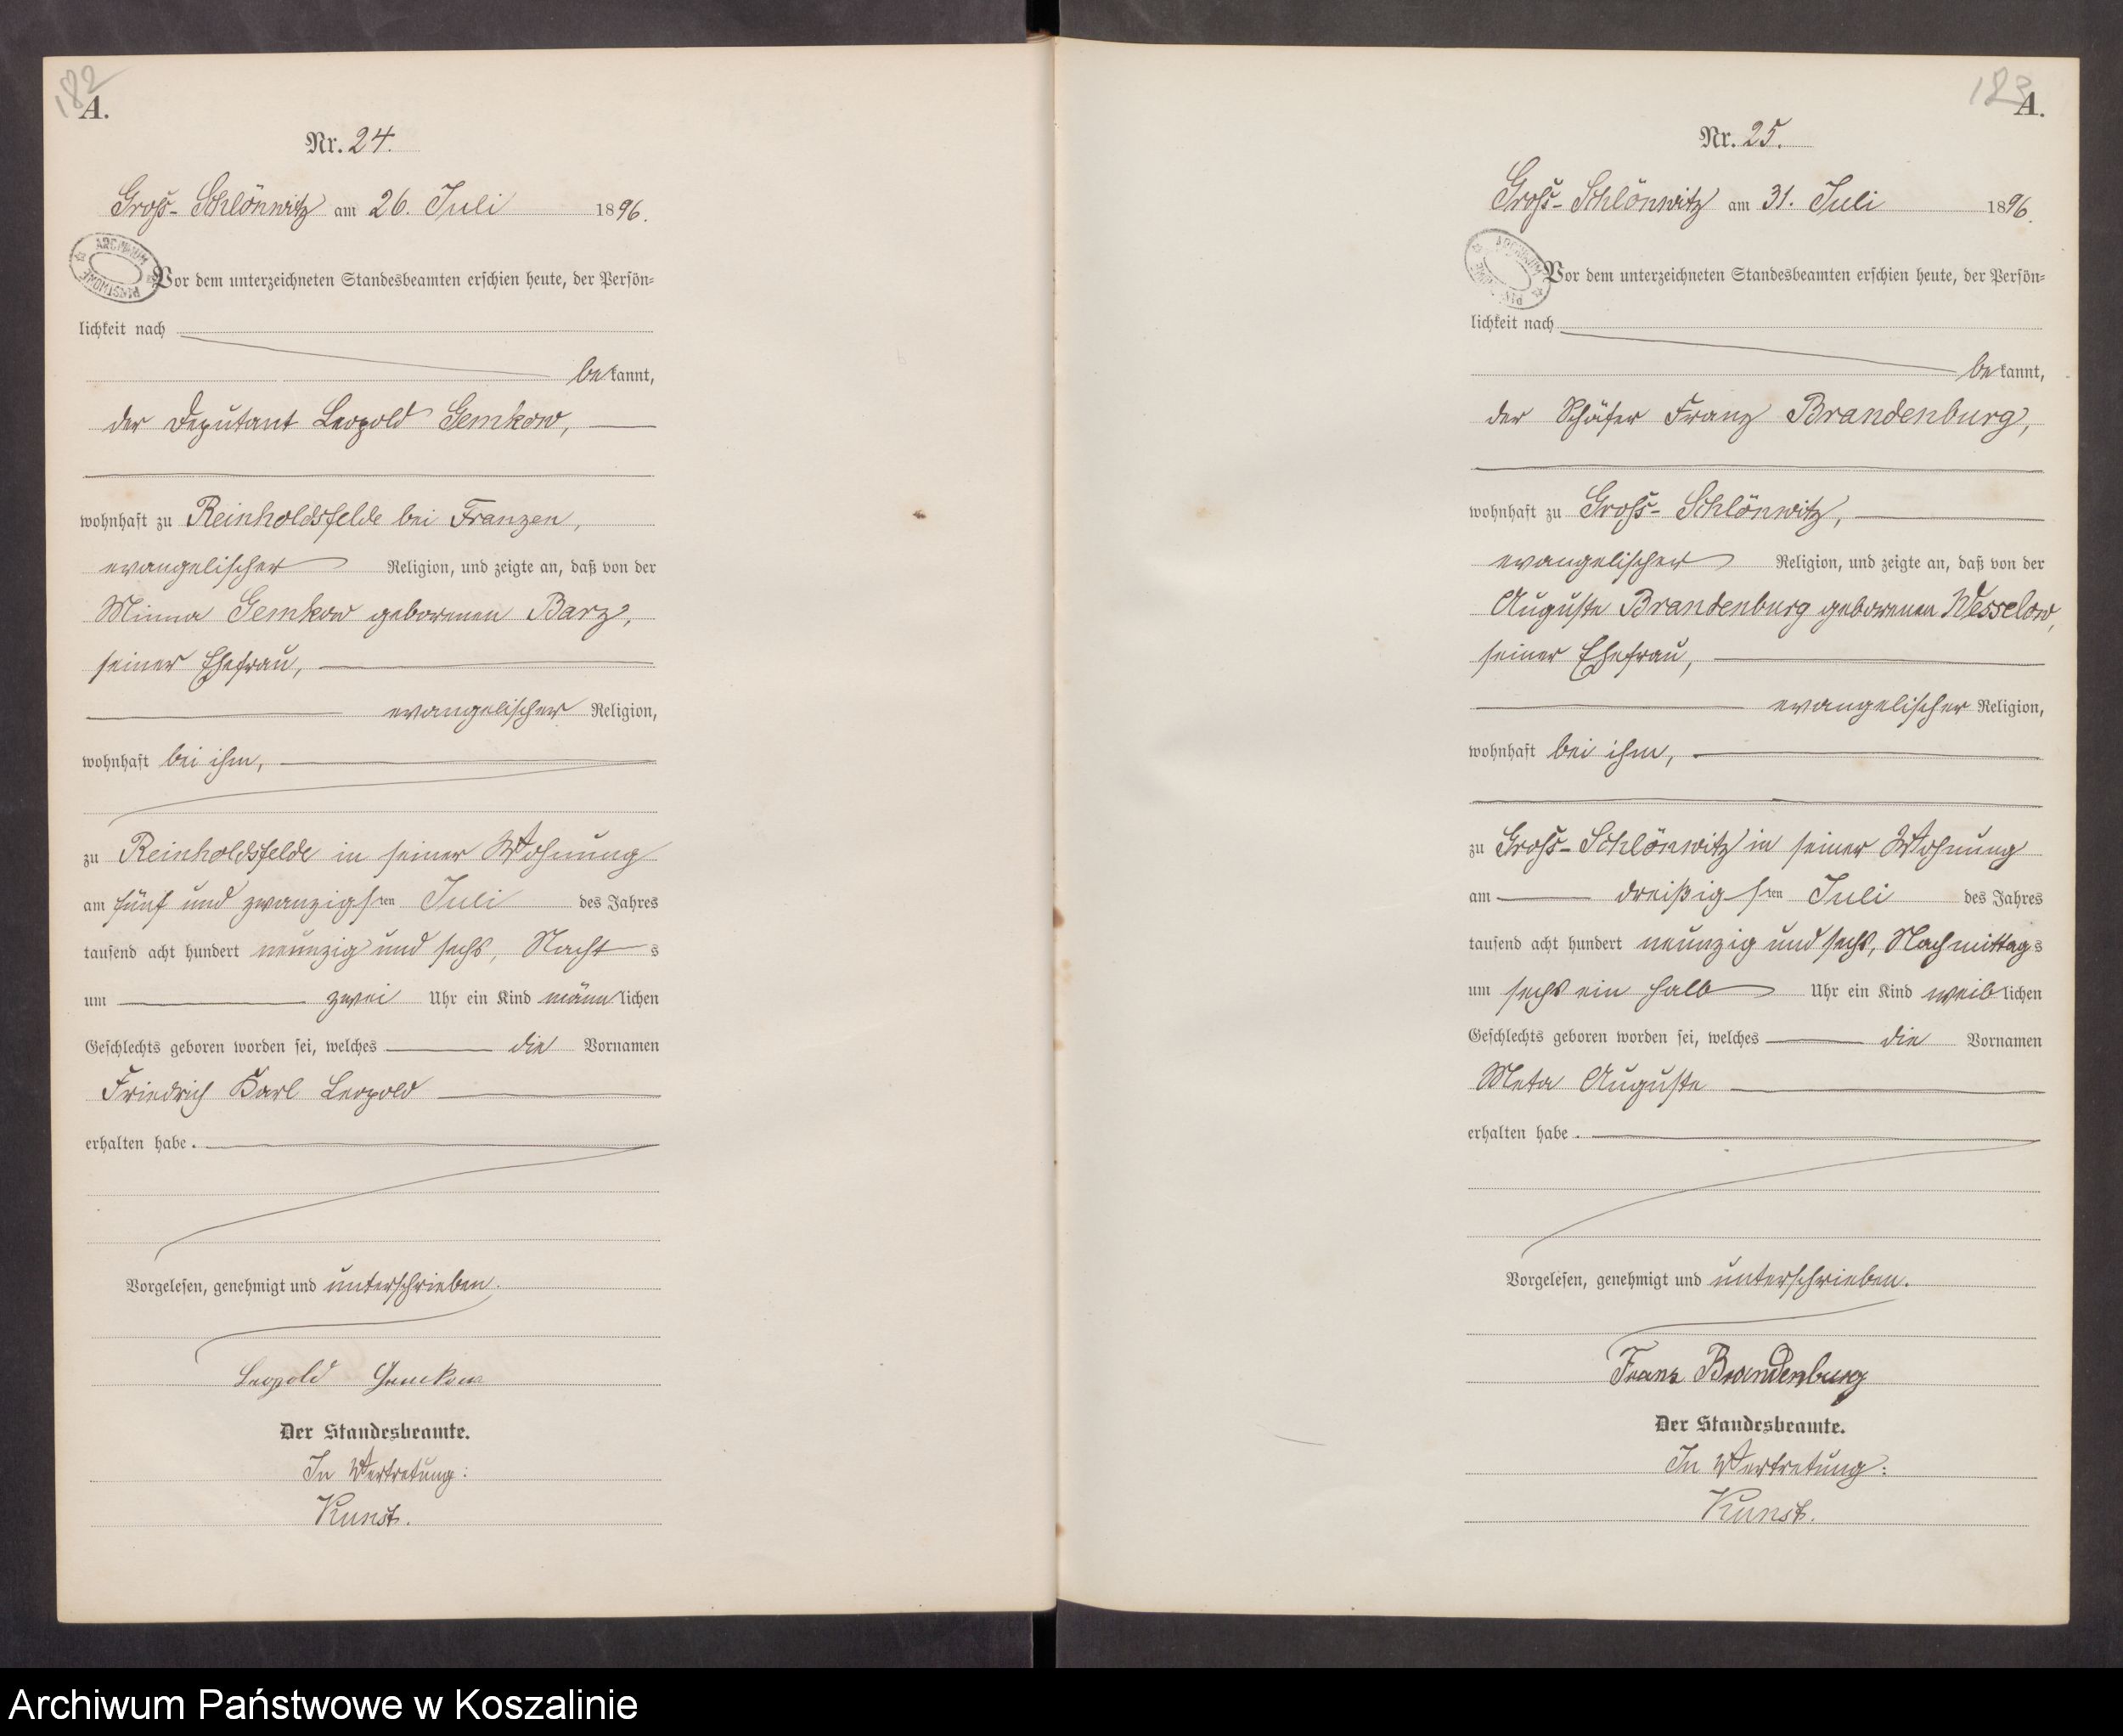 182
A.
Nr. 24.
Groß-Schlönwitz am 26. Juli 1896.
ARCHIWUM PAŃSTWOWE
Vor dem unterzeichneten Standesbeamten erschien heute, der Persön=
lichkeit nach
bekannt,
der Deputant Leopold Gemkow,
wohnhaft zu Reinholdsfelde bei Franzen,
evangelischer Religion, und zeigte an, daß von der
Minna Gemkow geborenen Barz,
seiner Ehefrau,
evangelischer Religion,
wohnhaft bei ihm,
zu Reinholdsfelde in seiner Wohnung
am fünf und zwanzigsten Juli des Jahres
tausend acht hundert neunzig und sechs, Nachts
um zwei Uhr ein Kind männlichen
Geschlechts geboren worden sei, welches die Vornamen
Friedrich Karl Leopold
erhalten habe.
Vorgelesen, genehmigt und unterschrieben.
Leopold Gemkow
Der Standesbeamte.
In Vertretung:
Kunst.
183
A.
Nr. 25.
Groß-Schlönwitz am 31. Juli 1896.
Vor dem unterzeichneten Standesbeamten erschien heute, der Persön=
lichkeit nach
bekannt,
der Schäfer Franz Brandenburg,
wohnhaft zu Groß-Schlönwitz,
evangelischer Religion, und zeigte an, daß von der
Auguste Brandenburg geborenen Wesselow,
seiner Ehefrau,
evangelischer Religion,
wohnhaft bei ihm,
zu Groß-Schlönwitz in seiner Wohnung
am dreißigsten Juli des Jahres
tausend acht hundert neunzig und sechs, Nachmittags
um sechs ein halb Uhr ein Kind weiblichen
Geschlechts geboren worden sei, welches die Vornamen
Meta Auguste
erhalten habe.
Vorgelesen, genehmigt und unterschrieben.
Franz Brandenburg
Der Standesbeamte.
In Vertretung:
Kunst.
Archiwum Państwowe w Koszalinie